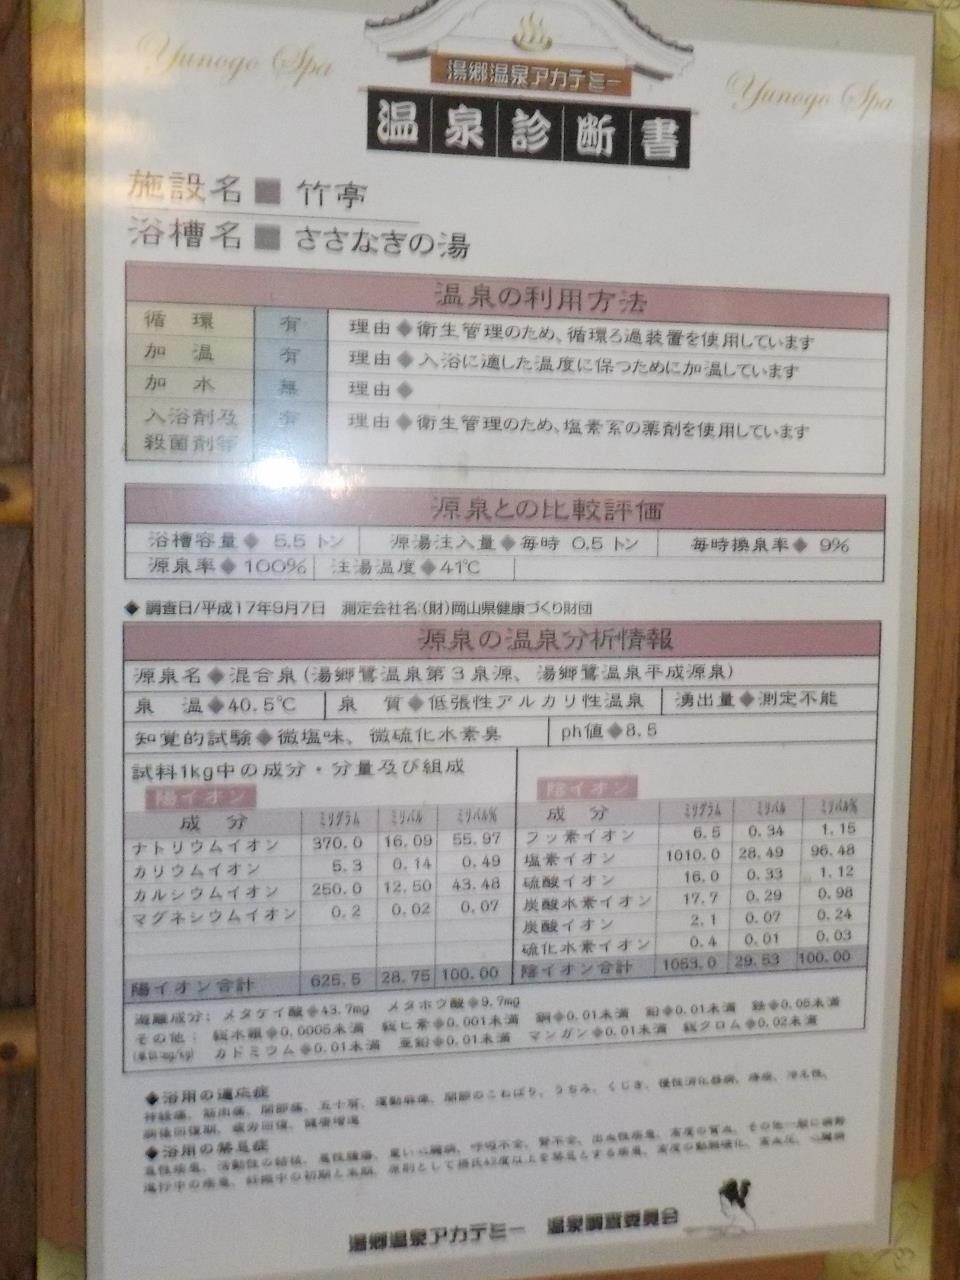 Yunogo Spa
湯郷温泉アカデミー
Yunogo Spa
温泉診断書
施設名■竹亭
浴槽名■ささなきの湯
温泉の利用方法
循環 有 理由◆衛生管理のため、循環ろ過装置を使用しています
加温 有 理由◆入浴に適した温度に保つために加温しています
加水 無 理由◆
入浴剤及 有 理由◆衛生管理のため、塩素系の薬剤を使用しています
殺菌剤等
源泉との比較評価
浴槽容量◆ 5.5トン 源湯注入量◆毎時 0.5トン 毎時換泉率◆ 9%
源泉率◆100% 注湯温度◆41℃
◆調査日/平成17年9月7日 測定会社名:(財)岡山県健康づくり財団
源泉の温泉分析情報
源泉名◆混合泉(湯郷鷺温泉第3泉源、湯郷鷺温泉平成源泉)
泉 温◆40.5℃ 泉 質◆低張性アルカリ性温泉 湧出量◆測定不能
知覚的試験◆微塩味、微硫化水素臭 ph値◆8.5
試料1kg中の成分・分量及び組成
陽イオン 陰イオン
成分 ミリグラム ミリバル ミリバル% 成分 ミリグラム ミリバル ミリバル%
ナトリウムイオン 370.0 16.09 55.97 フッ素イオン 6.5 0.34 1.15
カリウムイオン 5.3 0.14 0.49 塩素イオン 1010.0 28.49 96.48
カルシウムイオン 250.0 12.50 43.48 硫酸イオン 16.0 0.33 1.12
マグネシウムイオン 0.2 0.02 0.07 炭酸水素イオン 17.7 0.29 0.98
炭酸イオン 2.1 0.07 0.24
硫化水素イオン 0.4 0.01 0.03
陽イオン合計 625.5 28.75 100.00 陰イオン合計 1053.0 29.53 100.00
遊離成分: メタケイ酸◆43.7mg メタホウ酸◆9.7mg
その他: 総水銀◆0.0005未満 総ヒ素◆0.001未満 銅◆0.01未満 鉛◆0.01未満 鉄◆0.05未満
(単位:mg/kg) カドミウム◆0.01未満 亜鉛◆0.01未満 マンガン◆0.01未満 総クロム◆0.02未満
◆浴用の適応症
神経痛、筋肉痛、関節痛、五十肩、運動麻痺、関節のこわばり、うちみ、くじき、慢性消化器病、痔疾、冷え性、
病後回復期、疲労回復、健康増進
◆浴用の禁忌症
急性疾患、活動性の結核、悪性腫瘍、重い心臓病、呼吸不全、腎不全、出血性疾患、高度の貧血、その他一般に病勢
進行中の疾患、妊娠中の初期と末期、原則として摂氏42度以上を禁忌とする疾患、高度の動脈硬化、高血圧、心臓病
湯郷温泉アカデミー 温泉調査委員会